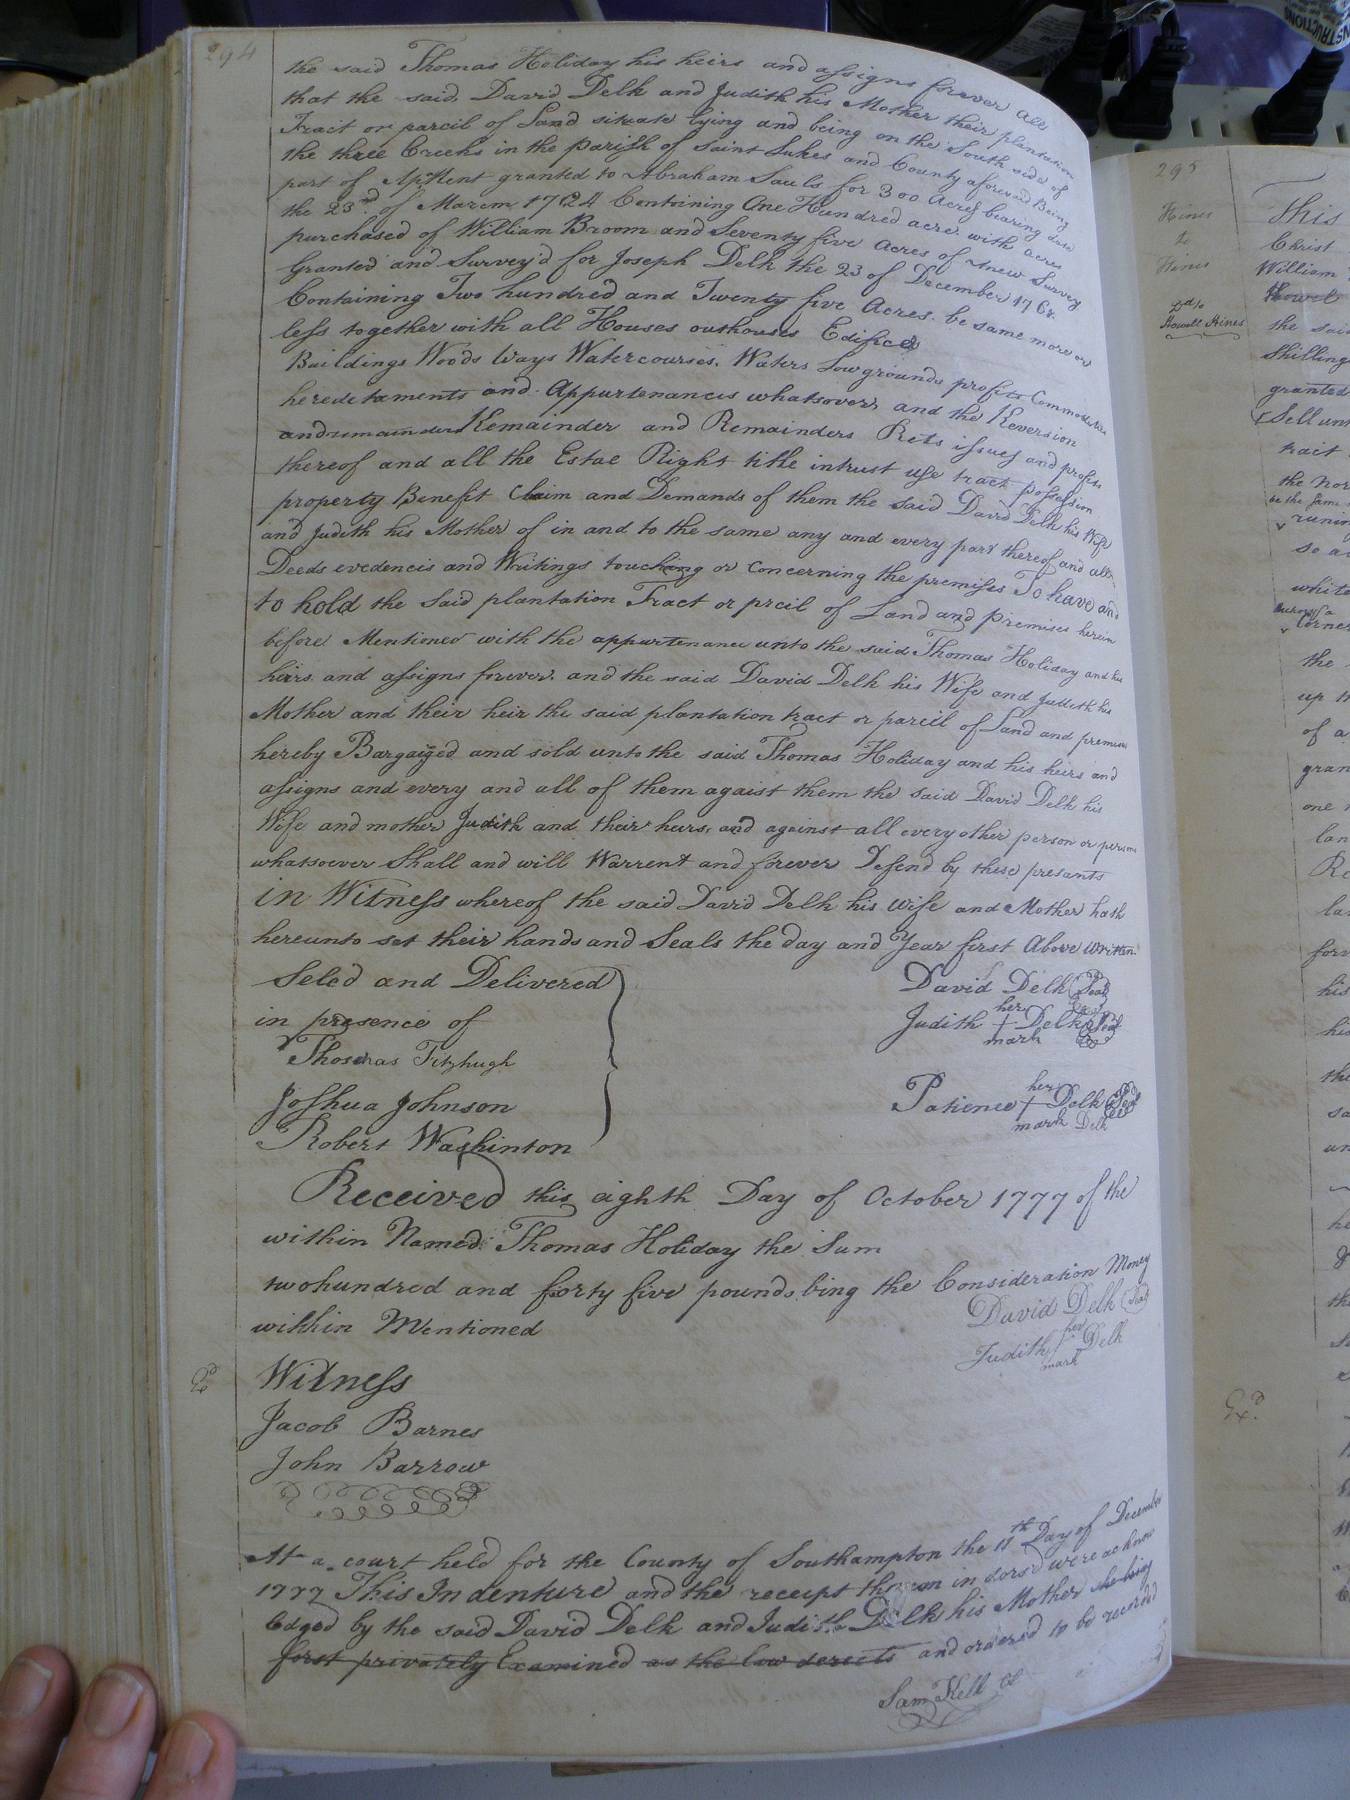 294
the said Thomas Holiday his heirs and assigns forever All
that the said David Delk and Judith his Mother their plantation
Tract or parcil of Land situate lying and being on the South side of
the three Creeks in the parish of Saint Lukes and County aforesaid Being
part of granted to Abraham Sauls for 300 Acres bearing date
the 23rd of March 1724 Containing One Hundred acres with acres
purchased of William Broom and Seventy five Acres of new Survey
Granted and Survey'd for Joseph Delk the 23 of December 176
Containing Two hundred and Twenty five Acres be same more or
less together with all Houses outhouses Edifices
Buildings Woods Ways Watercourses, Waters Lowgrounds profits Commodities
heredetaments and Appurtenances whatsoever and the Reversion
Remainder and Remainders Rets issues and profits
thereof and all the Estae Right title intrust use tract possession
property Benefit Claim and Demands of them the said David Delk his Wife
and Judith his Mother of in and to the same any and every part thereof and all
Deeds evedencis and Writings touching or concerning the premises To have and
to hold the said plantation Tract or prcil of Land and premises herein
before Mentioned with the appurtenance unto the said Thomas Holiday and his
heirs and assigns forever and the said David Delk his Wife and Judeth his
Mother and their heir the said plantation tract or parcil of Land and premises
hereby Bargaiged and sold unto the said Thomas Holiday and his heirs and
assigns and every and all of them agaist them the said David Delk his
Wife and mother Judith and their heirs and against all every other person or persons
whatsoever Shall and will Warrent and forever Defend by these presants
in Witness whereof the said David Delk his wife and Mother hath
hereunto set their hands and Seals the day and Year first Above written
Seled and Delivered
in presence of
Thosmas Fitzhugh
Joshua Johnson
Robert Washinton
David Delk Seal
her
Judith + Delk Seal
mark
her
Patience + Delk Seal
mark Delk
Received this eighth Day of October 1777 of the
within Named Thomas Holiday the Sum
twohundred and forty five pounds bing the Consideration Money
within Mentioned
David Delk Seal
her
Judith + Delk
mark
Exd
Witness
Jacob Barnes
John Barrow
At a court held for the County of Southampton the 11th Day of December
1777 This Indenture and the receipt thereon indorsd were acknow
ledged by the said David Delk and Judith Delk his Mother she being
first privately Examined as the law derects and ordered to be recorded
Sam Kell Cl
295
Hines
to
Hines
Dd to
Howell Hines
This
Christ
William
Howel
the said
Shilling
granted
Sell un
tract
the nor
be the same
runin
so a
white
corner
the
up
of a
gran
one
lan
Re
la
forv
his
his
the
sa
un
he
the
Exd